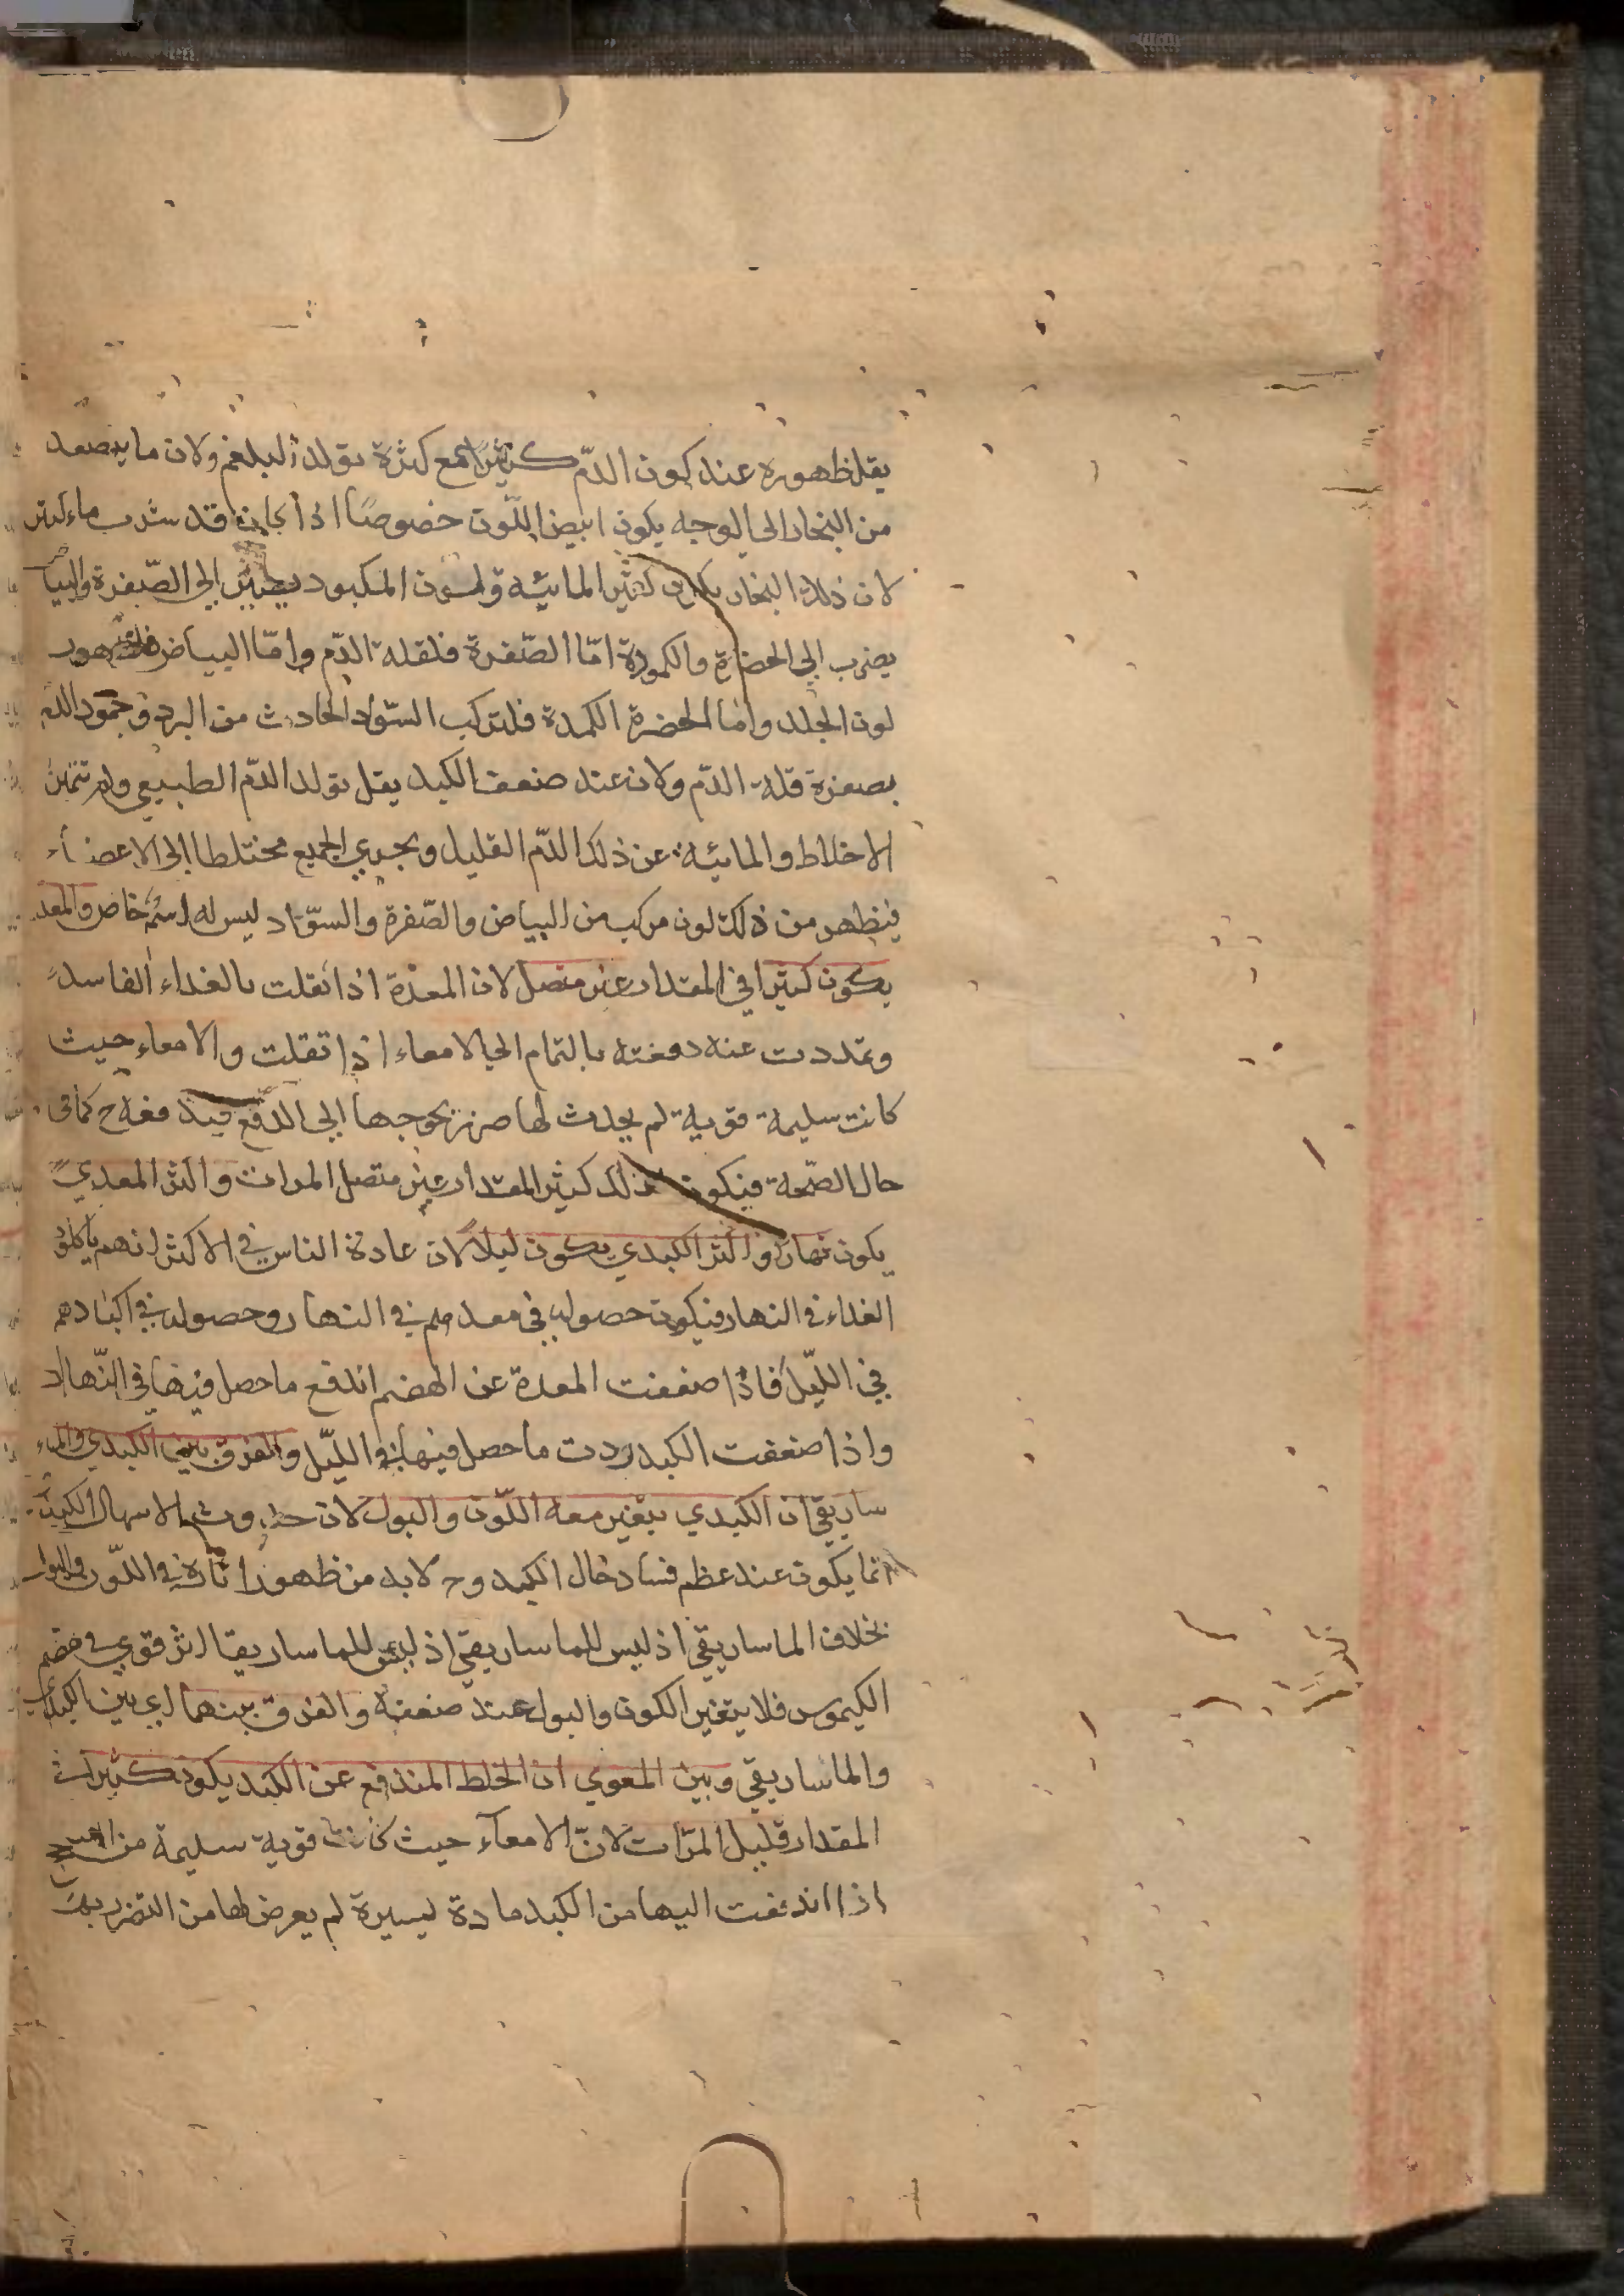 يقل ظهوره عند كون الدّم كثيرًا مع كثرة تولد البلغم ولان ما يتصعد
من البخار الى الوجه يكون ابيض اللّون خصوصًا اذا كان قد شرب ماء كثير
لان ذلك البخار يكون كثير المائية ولون المكبود يضرب الى الصّفرة والبياض
يضرب الى الخضرة والكمودة امّا الصّفرة فلقلة الدّم وامّا البياض فلظهور
لون الجلد واما الخضرة الكمدة فلتركب السّواد الحادث من البرد وجمود الدم
بصفرة قلة الدّم ولان عند ضعف الكبد يقل تولد الدّم الطبيعي ولم تتميز
الاخلاط والمائية عن ذلك الدّم القليل ويجري الجميع مختلطا الى الاعضاء
فيظهر من ذلك لون مركب من البياض والصّفرة والسوّاد ليس له اسم خاص والمعدي
يكون كثيرا في المقدار غير متصل لان المعدة اذا ثقلت بالغذاء الفاسد
وتمددت عنه دفعته بالتمام الى الامعاء اذا ثقلت والامعاء حيث
كانت سليمة قوية لم يحدث لها ضرر يحوجها الى الدفع فيدفعه ح كما في
حال الصّحة فيكون كذلك كثير المقدار غير متصل المرات واكثر المعدي
يكون نهارًا واكثر الكبدي يكون ليلًا لان عادة الناس في الاكثر انهم ياكلون
الغذاء في النهار فيكون حصوله في معدهم في النهار وحصوله في اكبادهم
في اللّيل فاذا ضعفت المعدة عن الهضم اندفع ما حصل فيها في النّهار
واذا ضعفت الكبد ردت ما حصل فيها في اللّيل والفرق بين الكبدي والما
ساريقي ان الكبدي يتغير معه اللّون والبول لان حدوث الاسهال الكبدي
انما يكون عند عظم فساد حال الكبد وح لا بد من ظهور اثاره في اللّون والبول
بخلاف الماساريقي اذ ليس للماساريقي اذ ليس للماساريقا اثر قوي في هضم
الكيموس فلا يتغير الكون والبول عند ضعفه والفرق بينهما اي بين الكبدي
والماساريقي وبين المعوي ان الخلط المندفع عن الكبد يكون كثير
المقدار قليل المرّات لانّ الامعآء حيث كانت قوية سليمة من
اذا اندفعت اليها من الكبد مادة يسيرة لم يعرض لها من التضرر بها